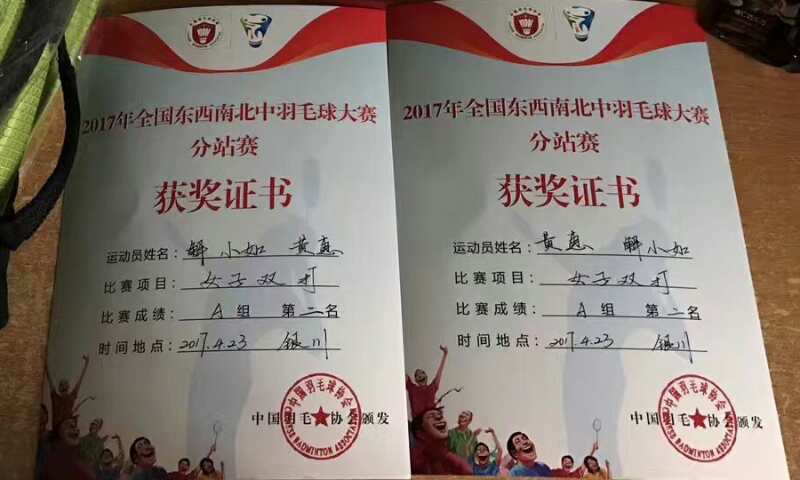 2017年全国东西南北中羽毛球大赛
分站赛
获奖证书
运动员姓名：解小如 黄惠
比赛项目：女子双打
比赛成绩：A组 第二名
时间地点：2017.4.23 银川
中国羽毛球协会颁发
中国羽毛球协会
CHINESE BADMINTON ASSOCIATION
2017年全国东西南北中羽毛球大赛
分站赛
获奖证书
运动员姓名：黄惠 解小如
比赛项目：女子双打
比赛成绩：A组 第二名
时间地点：2017.4.23 银川
中国羽毛球协会颁发
中国羽毛球协会
CHINESE BADMINTON ASSOCIATION